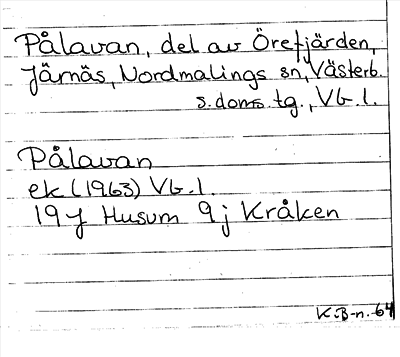 Pålavan, del av Örefjärden,
Järnäs, Nordmalings sn, Västerb.
s. doms. tg., Vb. l.
Pålavan
ek (1963) Vb. l.
19 J Husum 9 j Kråken
K. B-n. 64